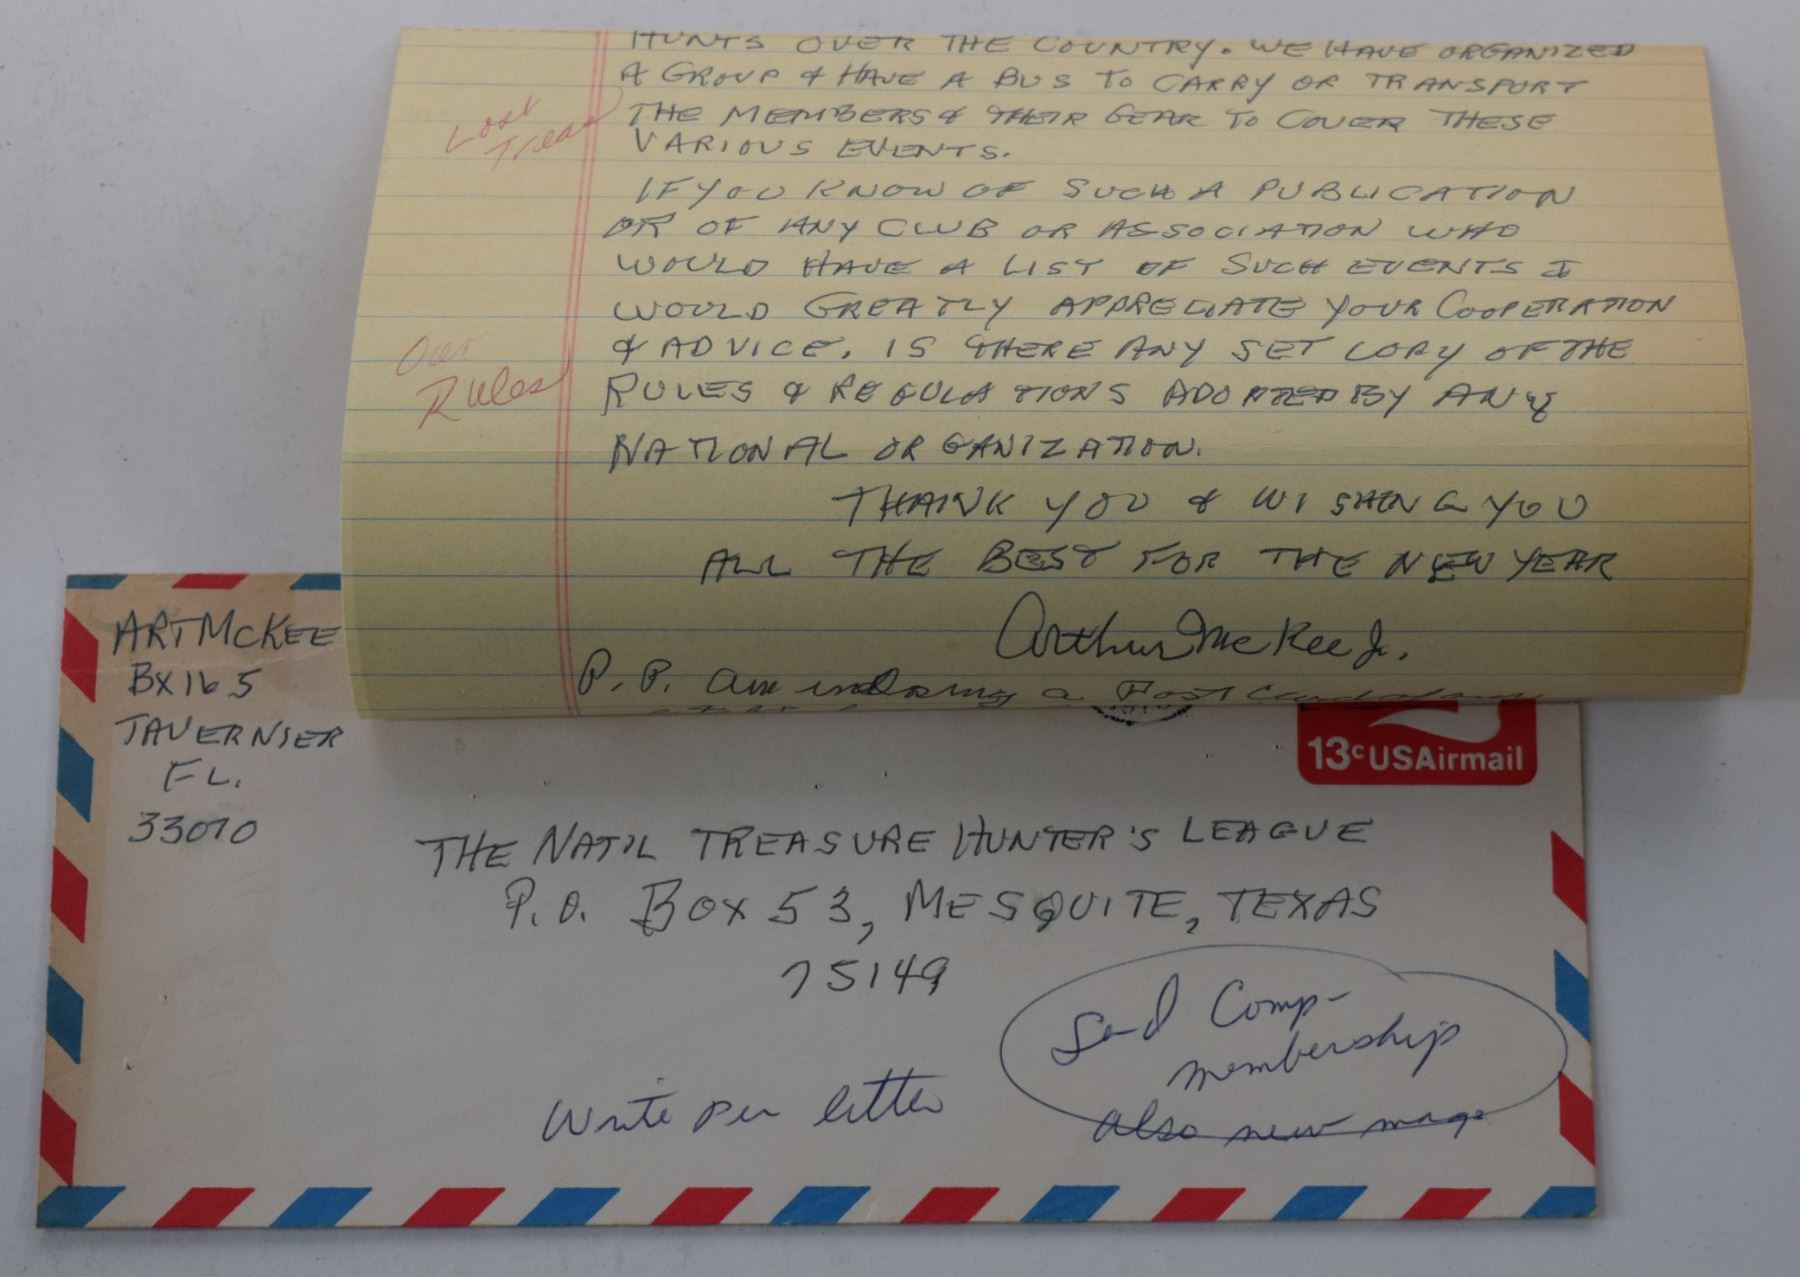 HUNTS OVER THE COUNTRY. WE HAVE ORGANIZED
A GROUP & HAVE A BUS TO CARRY OR TRANSPORT
THE MEMBERS & THEIR GEAR TO COVER THESE
VARIOUS EVENTS.
Lost
Treas
IF YOU KNOW OF SUCH A PUBLICATION
OR OF ANY CLUB OR ASSOCIATION WHO
WOULD HAVE A LIST OF SUCH EVENTS I
WOULD GREATLY APPRECIATE YOUR COOPERATION
& ADVICE. IS THERE ANY SET COPY OF THE
RULES & REGULATIONS ADOPTED BY ANY
NATIONAL ORGANIZATION.
Our
Rules
THANK YOU & WISHING YOU
ALL THE BEST FOR THE NEW YEAR
Arthur McKee Jr.
P.P. am inclosing a Post
ART MCKEE
BX 165
TAVERNIER
FL.
33070
13c USAirmail
THE NAT'L TREASURE HUNTER'S LEAGUE
P.O. BOX 53, MESQUITE, TEXAS
75149
Send Comp-
membership
also new mag
Write per letter